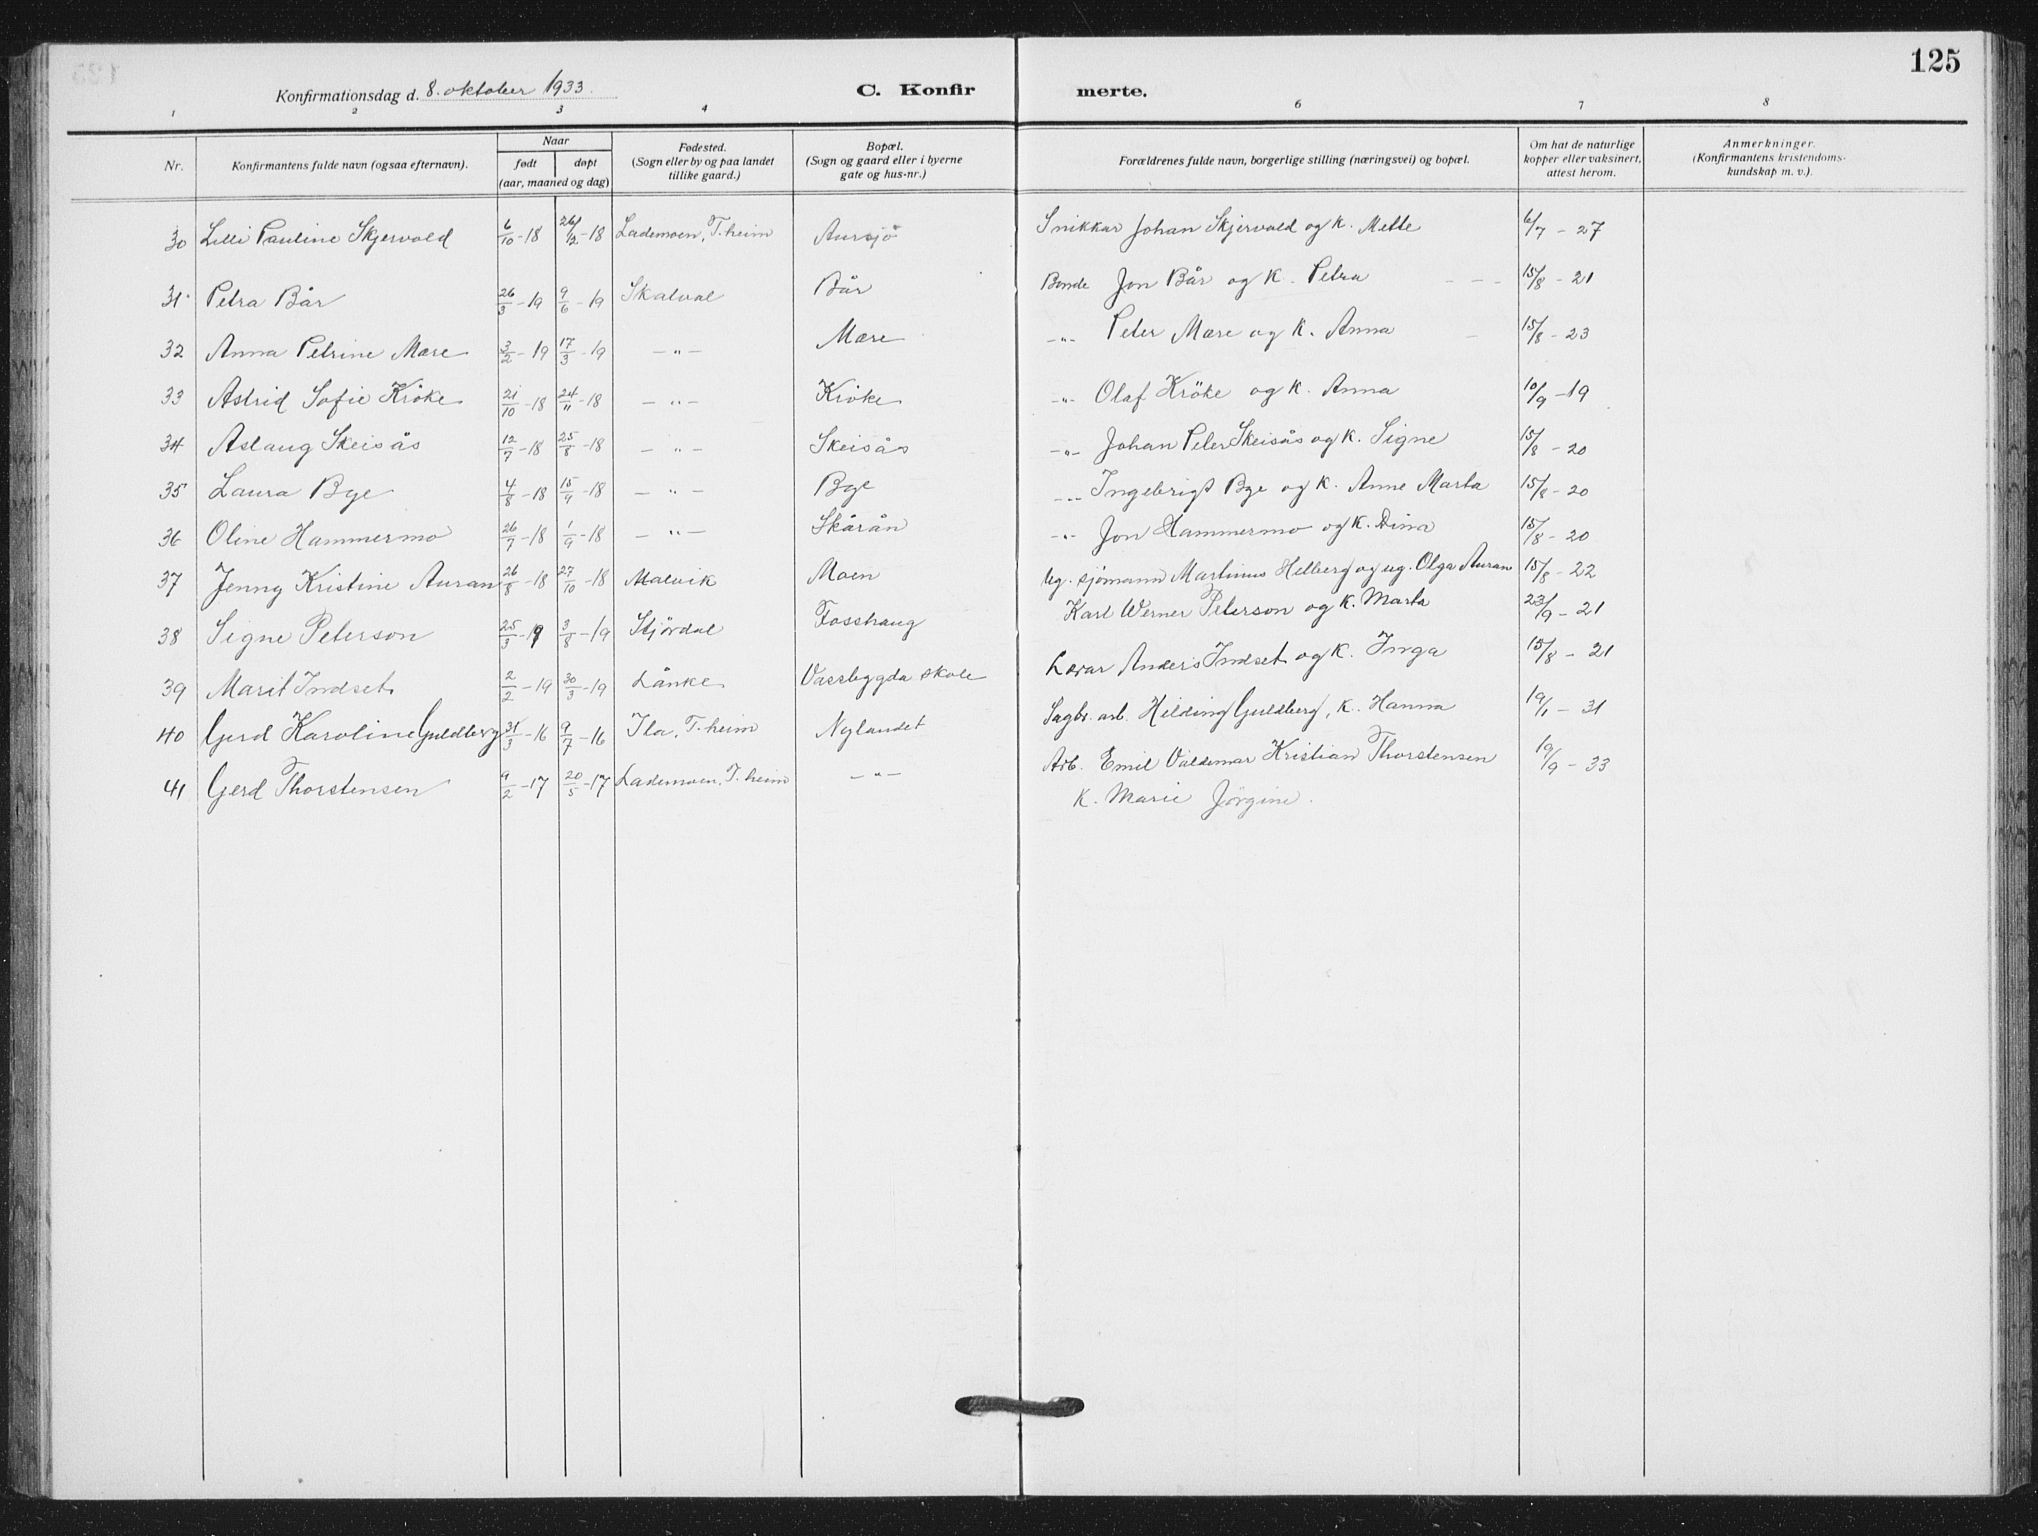 125
Konfirmationsdag d. 8. oktober 1933. C. Konfirmerte.
1 2 3 4 6 7 8
Nr. Konfirmantens fulde navn (ogsaa efternavn). Naar født døpt (aar, maaned og dag) Fødested. (Sogn eller by og paa landet tillike gaard.) Bopæl. (Sogn og gaard eller i byerne gate og hus-nr.) Forældrenes fulde navn, borgerlige stilling (næringsvei) og bopæl. Om hat de naturlige kopper eller vaksinert, attest herom. Anmerkninger. (Konfirmantens kristendoms-kundskap m. v.).
30 Lilli Pauline Skjervold 6/10-18 26/12-18 Lademoen, T.heim Aursjö Snikkar Johan Skjervold og K. Mette 6/7-27
31 Petra Bår 26/3-19 9/6-19 Skatval Bår Bonde Jon Bår og K. Petra - - - 15/8-21
32 Anna Petrine Mære 3/2-19 17/3-19 -"- Mære -"- Peter Mære og K. Anna - 15/8-23
33 Astrid Sofie Kröke 21/10-18 24/11-18 -"- Kröke -"- Olaf Kröke og K. Anna 10/9-19
34 Aslaug Skeisås 12/7-18 25/8-18 -"- Skeisås -"- Johan Peter Skeisås og K. Signe 15/8-20
35 Laura Bye 4/8-18 15/9-18 -"- Bye -"- Ingebrigt Bye og K. Anne Marta 15/8-20
36 Oline Hammermo 26/7-18 1/9-18 -"- Skårån -"- Jon Hammermo og K. Dina 15/8-20
37 Jenny Kristine Auran 26/8-18 27/10-18 Malvik Moen Ug. sjömann Martinus Helberg og ug. Olga Auran 15/8-22
38 Signe Peterson 25/3-19 3/8-19 Stjördal Fosshaug Karl Werner Peterson og K. Marta 23/9-21
39 Marit Indset 2/2-19 30/3-19 Lånke Vassbygda skole Lærar Anders Indset og K. Inga 15/8-21
40 Gerd Karoline Guldberg 31/3-16 9/7-16 Ila, T.heim Nylandet Sagbr. arb. Hilding Guldberg, K. Hanna 19/1-31
41 Gerd Thorstensen 9/2-17 20/5-17 Lademoen, T.heim -"- Arb. Emil Valdemar Kristian Thorstensen 19/9-33
K. Marie Jörgine.